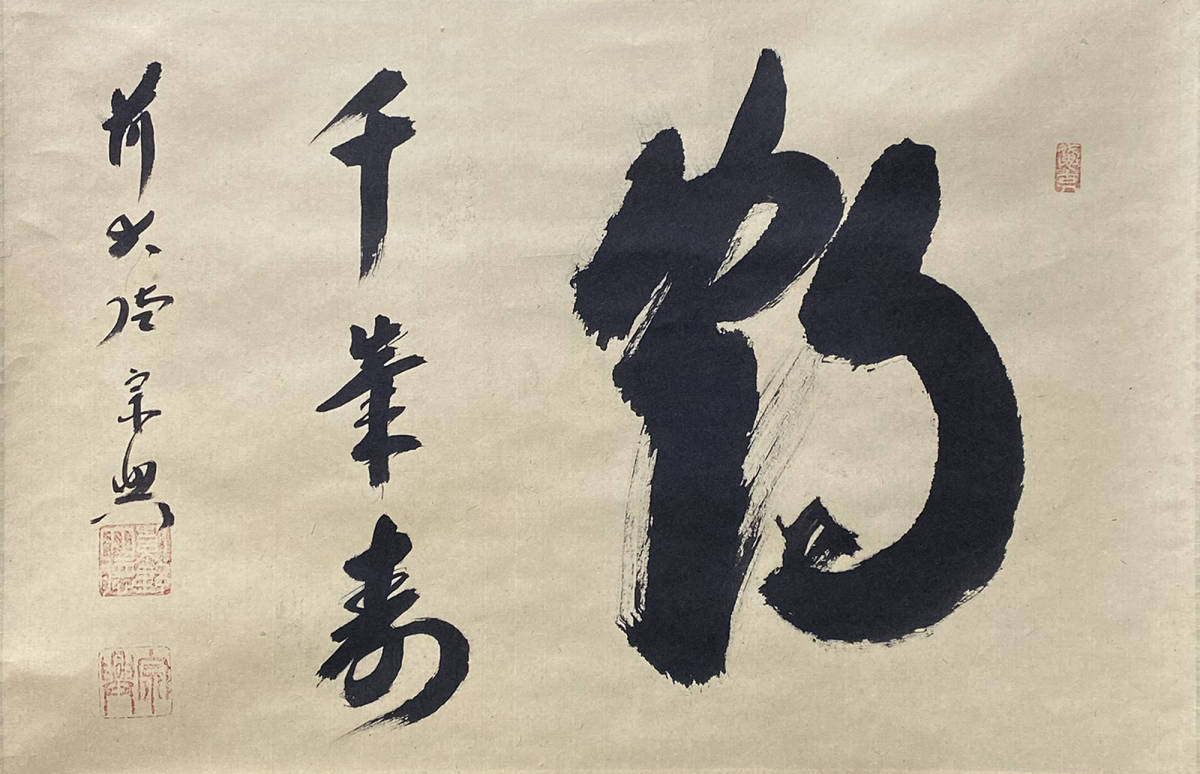 鶴
千年寿
前大徳宗興